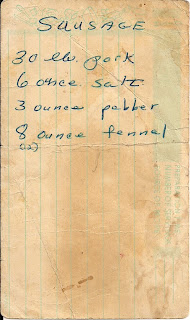 SAUSAGE
30 lb. pork
6 once salt
3 ounce pebber
8 ounce fennel
(12)